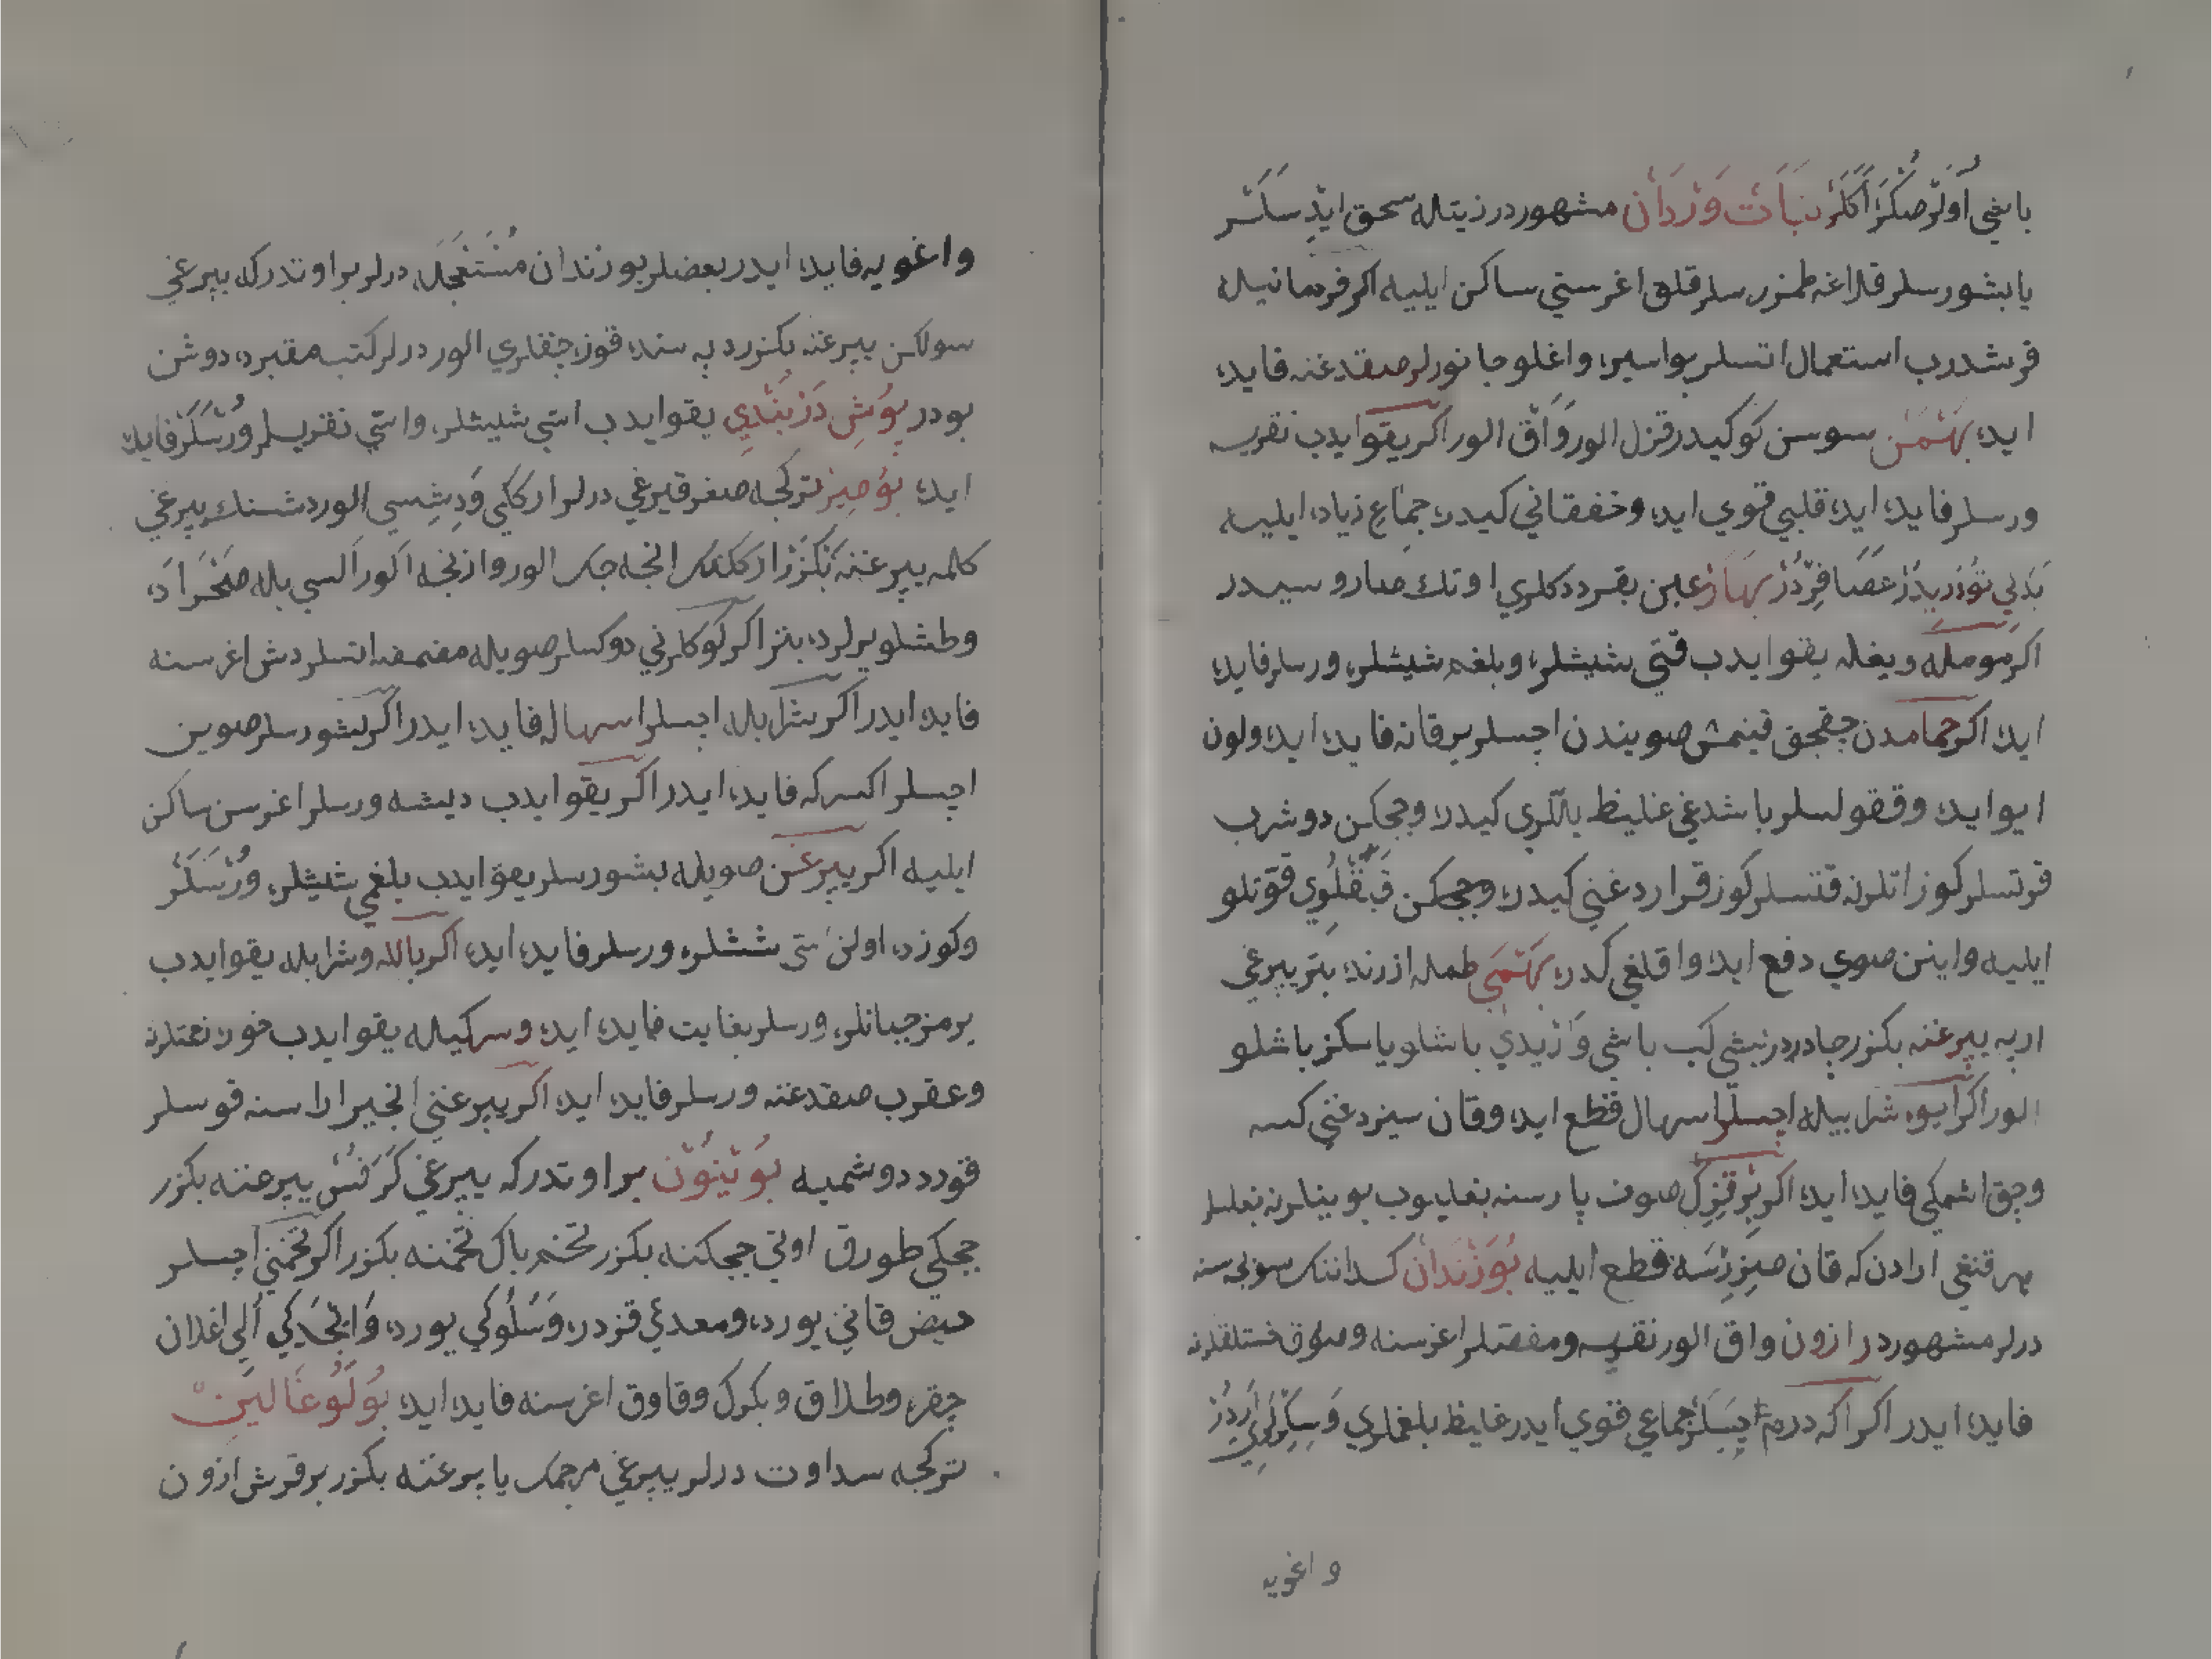 باشي اولر صكر اكلر بنات وردان مشهوردر زيتله سحق ايدسكر
يا بشورسلر قلاغه طمزرسلر قلق اغرسني ساكن ايليه اكر فرمانيله
قرشدرب استعمال اتسلر بواسيره واغلو جانورلر صقدغنه فايده
ايده بهمن سوسن كوكيدر قزل الور واق الور اكر يقو ايدب نقريسه
ورسلر فايده ايده قلبي قوي ايده وخفقاني كيدره جماع زياده ايليه
بدلي تودريدر عصافردر بهار عين بقردكلري اوتك صارو سيدر
اكر موميله ويغله يقو ايدب قتي شيشلره وبلغم شيشلره ورسلر فايده
ايده اكر حمامدن چقجق قينمش صويندن اچسلر يرقانه فايده ايده ولون
ايو ايده وققولسلر باشدغي غليظ يللري كيدره وچچكن دوشرب
قرتسلر كوز اتلرنه قتسلر كوز قراردغني كيدره وچچكن قبقلوي قوتلو
ايليه واينن صوي دفع ايده واقلغي كدره بهمي طمله ازرنده بتر يپرغي
اربه يپرغنه بكزر چادردر نبشي كب باشي وازيدي باشلو يا سكز باشلو
الور اكر ايوه شرابيله اچسلر اسهال قطع ايده وقان سيزدغني كسه
وچق اشمكي فايده ايده اكر بر قزل صوف پارسنه بغليوب بوينلرنه بغلسلر
هر قنغي ارادن كه قان صيزرسه قطع ايليه بوزندان كسداننك سورنجه سنه
درلر مشهوردر ازون واق الور نقريسه ومفصللر اغرسنه وصوق خستلقلرنه
فايده ايدر اكر اكه درم اچسلر جماعي قوي ايدر غليظ بلغملري وسكرلري اردر
واغويه
واغويه فايده ايدر بعضلر بوزندان مستعجله درلر بر اوتدر كه يپرغي
سولكن يپرغنه بكزر دپه سنده قوزه چقلري الور درلر كتب مقبرده دوشن
بودر بوش دربندي يقو ايدب اسي شيشلره واسي نقريسلر ورسلر فايده
ايده بوصير تركجه صغر قيرغي درلر اركلي ودشسي الور دشنك يپرغي
كلمه يپرغنه بكزر اركنك انجه جك الور وازنجه اكور السي يله صحراده
وطشلو يرلرده بتر اكر كوكلرني دوكسلر صويله مضمضه اتسلر دش اغرسنه
فايده ايدر اكر شرابله اچسلر اسهاله فايده ايدر اكر بشورسلر صوين
اچسلر اكسركه فايده ايدر اكر يقو ايدب ديشه ورسلر اغرسن ساكن
ايليه اكر يپرغن صويله بشورسلر يقو ايدب بلغمي شيشلره ورسلر
وكوزده اولن سي ششلره ورسلر فايده ايده اكر بالله وشرابله يقو ايدب
يرمز جبانلره ورسلر بغايت فايده ايده وسركيله يقو ايدب خوره نعتلرنه
وعقرب صقدغنه ورسلر فايده ايده اكر يپرغني انجير اراسنه قوسلر
قورد دوشميه بوينون بر اوتدر كه يپرغي كرفس يپرغنه بكزر
چچكي طورق اوتي چچكنه بكزر تخم باك تخمنه بكزر اكر تخمني اچسلر
حيض قاني يورده ومعدئي قزدره وسلوكي يورده وانجدكي الي اغلان
چقره وطلاق وبكرك وقاوق اغرسنه فايده ايده بولوغالين
تركجه سداوت درلر يپرغي مرجمك ياپرغنه بكزر بر قرش ازون